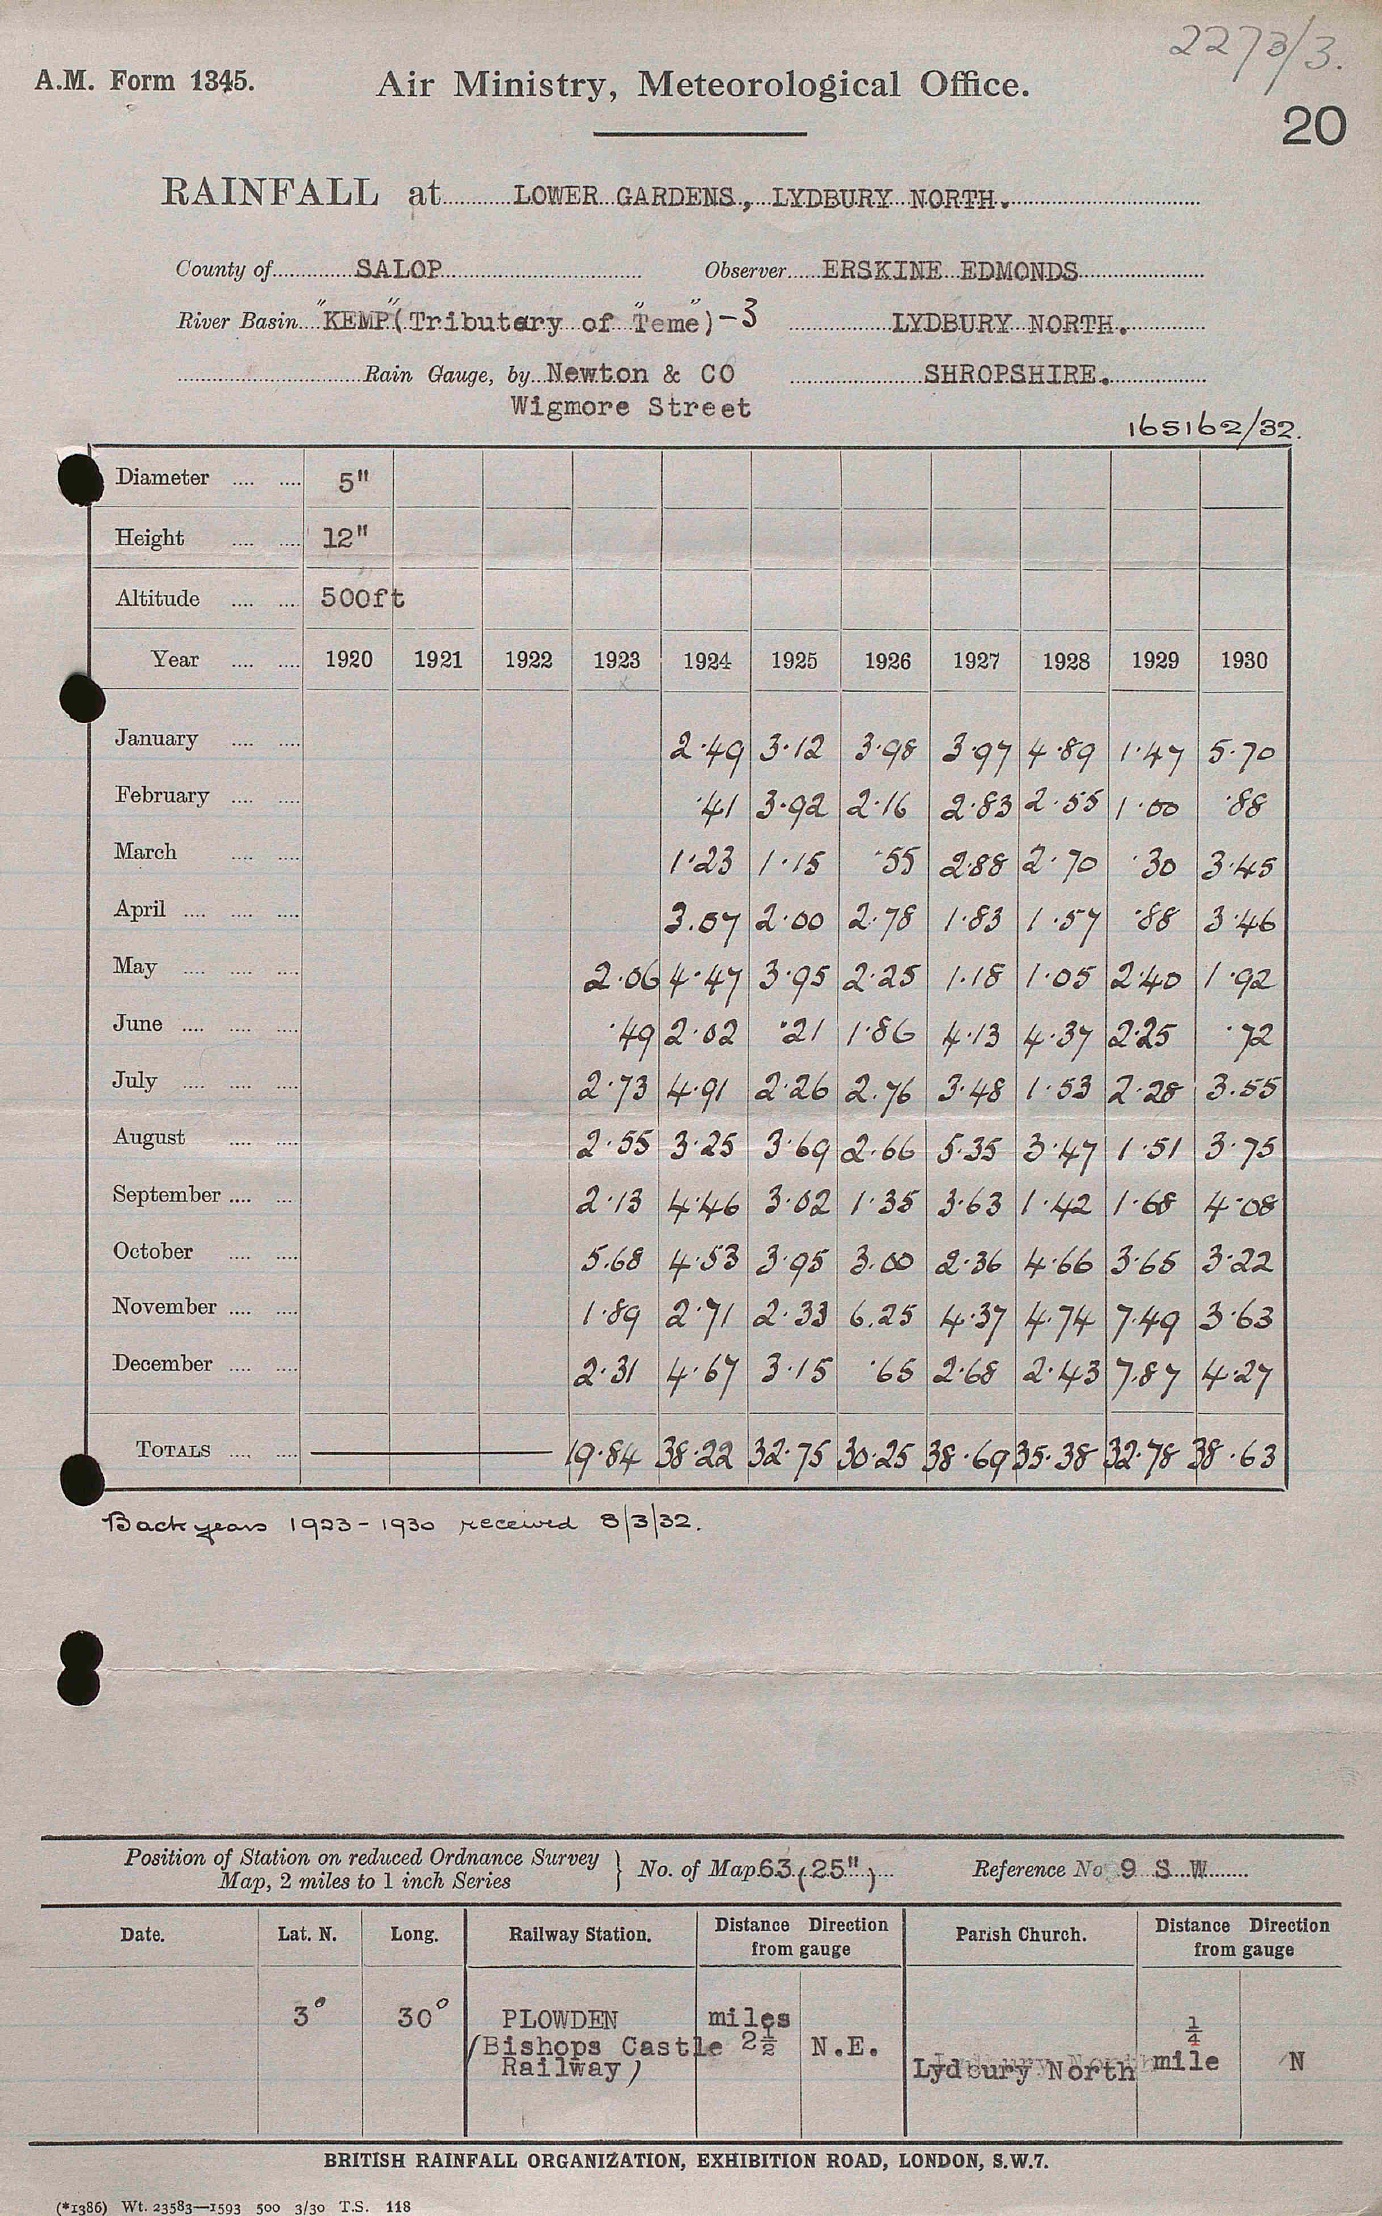 2273/3.
A.M. Form 1345. Air Ministry, Meteorological Office.
20
RAINFALL at LOWER GARDENS, LYDBURY NORTH.
County of SALOP Observer ERSKINE EDMONDS
River Basin "KEMP" (Tributary of "Teme") -3 LYDBURY NORTH.
Rain Gauge, by Newton & CO SHROPSHIRE.
Wigmore Street
165162/32.
Diameter .... .... 5"
Height .... .... 12"
Altitude .... .... 500ft
Year .... .... 1920 1921 1922 1923 1924 1925 1926 1927 1928 1929 1930
x
January .... .... 2.49 3.12 3.98 3.97 4.89 1.47 5.70
February .... .... .41 3.92 2.16 2.83 2.55 1.00 .88
March .... .... 1.23 1.15 .55 2.88 2.70 .30 3.45
April .... .... .... 3.07 2.00 2.78 1.83 1.57 .88 3.46
May .... .... .... 2.06 4.47 3.95 2.25 1.18 1.05 2.40 1.92
June .... .... .... .49 2.02 .21 1.86 4.13 4.37 2.25 .72
July .... .... .... 2.73 4.91 2.26 2.76 3.48 1.53 2.28 3.55
August .... .... 2.55 3.25 3.69 2.66 5.35 3.47 1.51 3.75
September .... .... 2.13 4.46 3.02 1.35 3.63 1.42 1.68 4.08
October .... .... 5.68 4.53 3.95 3.00 2.36 4.66 3.65 3.22
November .... .... 1.89 2.71 2.33 6.25 4.37 4.74 7.49 3.63
December .... .... 2.31 4.67 3.15 .65 2.68 2.43 7.87 4.27
TOTALS .... .... 19.84 38.22 32.75 30.25 38.69 35.38 32.78 38.63
Back years 1923-1930 received 8/3/32.
Position of Station on reduced Ordnance Survey
Map, 2 miles to 1 inch Series } No. of Map 63 (25") Reference No 9 S W
Date. Lat. N. Long. Railway Station. Distance Direction from gauge Parish Church. Distance Direction from gauge
3° 30° PLOWDEN miles 1/4
(Bishops Castle 2 1/2 N.E.
Railway) Lydbury North mile N
BRITISH RAINFALL ORGANIZATION, EXHIBITION ROAD, LONDON, S.W.7.
(*1386) Wt. 23583—1593 500 3/30 T.S. 118